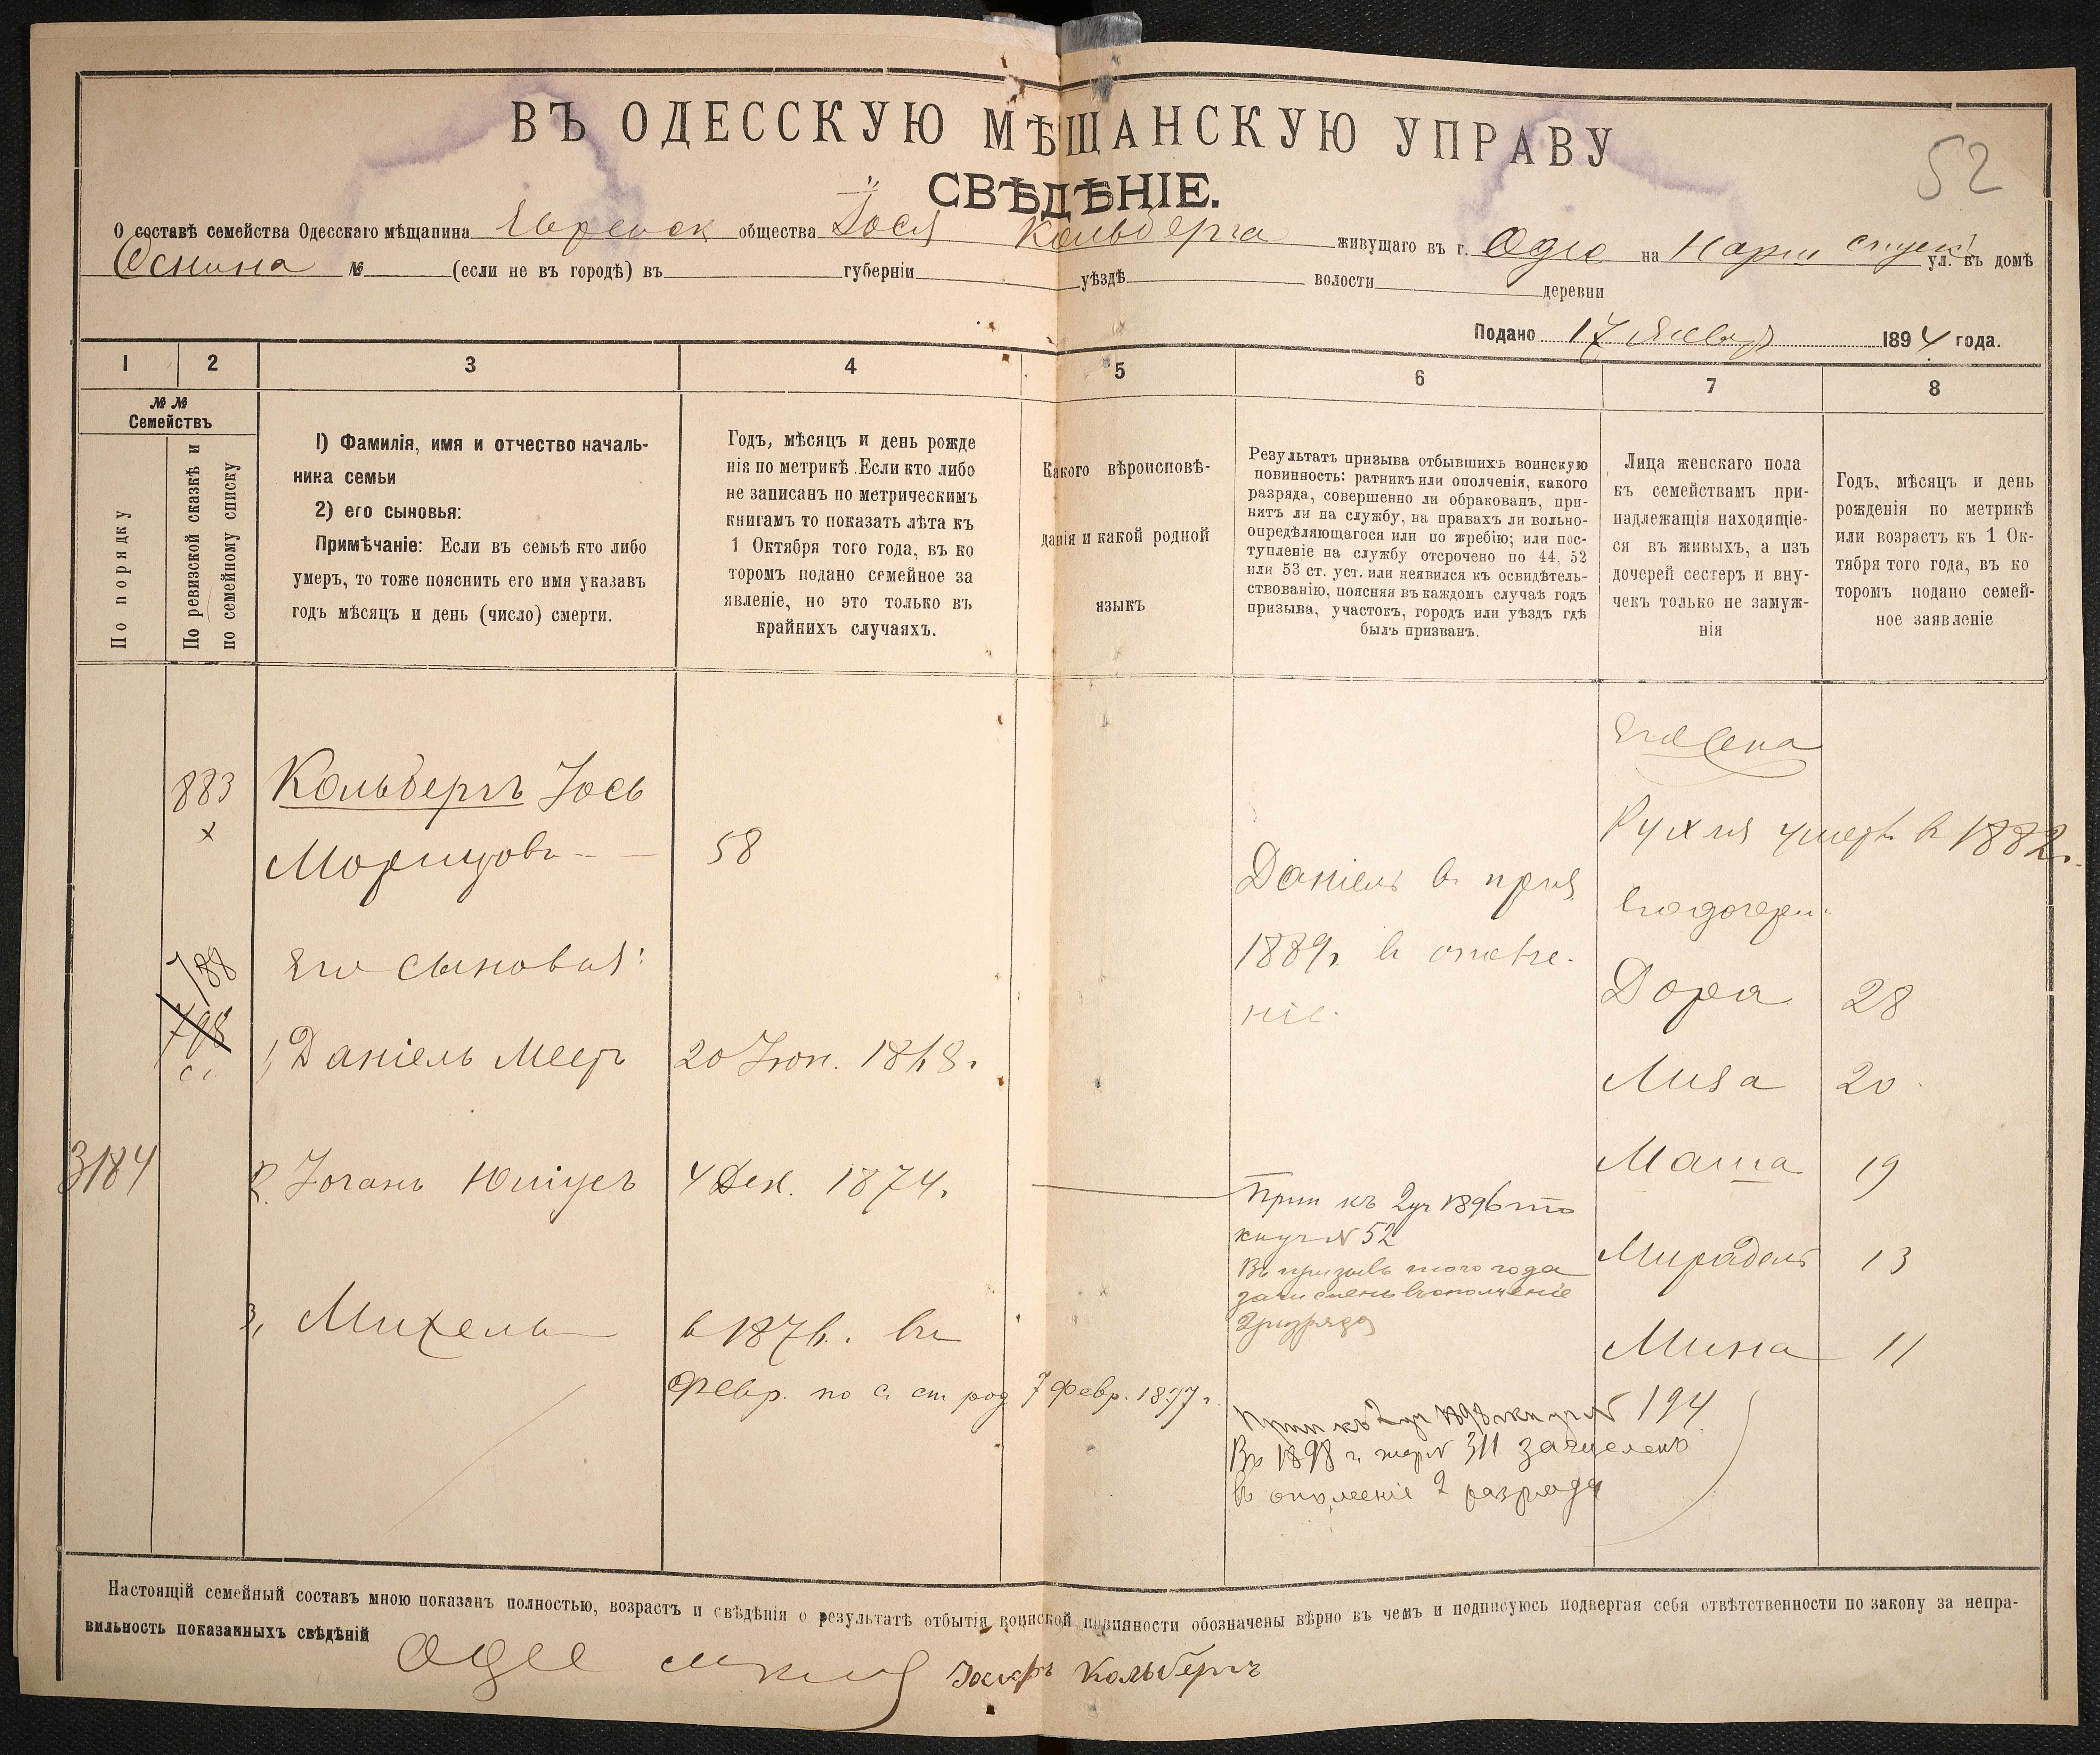 ВЪ ОДЕССКУЮ МѢЩАНСКУЮ УПРАВУ
52
СВѢДѢНІЕ.
О составѣ семейства Одесскаго мѣщанина Еврейск общества Іося Кольберга живущаго въ г. Одес на Нарыш спуск ул. въ домѣ
№ (если не въ городѣ) въ губерніи уѣздѣ волости деревни
Подано 17 Января 1894 года.
1 2 3 4 5 6 7 8
№ № Семействъ
По порядку
По ревизской сказкѣ и
по семейному списку
1) Фамилія, имя и отчество началь-
ника семьи
2) его сыновья:
Примѣчаніе: Если въ семьѣ кто либо
умеръ, то тоже пояснить его имя указавъ
годъ мѣсяцъ и день (число) смерти.
Годъ, мѣсяцъ и день рожде
нія по метрикѣ. Если кто либо
не записанъ по метрическимъ
книгамъ то показать лѣта къ
1 Октября того года, въ ко
торомъ подано семейное за
явленіе, но это только въ
крайнихъ случаяхъ.
Какого вѣроисповѣ-
данія и какой родной
языкъ
Результатъ призыва отбывшихъ воинскую
повинность: ратникъ или ополченія, какого
разряда, совершенно ли обракованъ, при-
нятъ ли на службу, на правахъ ли вольно-
опредѣляющагося или по жребію; или пос-
тупленіе на службу отсрочено по 44, 52
или 53 ст. уст. или неявился къ освидѣтель-
ствованію, поясняя въ каждомъ случаѣ годъ
призыва, участокъ, городъ или уѣздъ гдѣ
былъ призванъ.
Лица женскаго пола
къ семействамъ при-
надлежащія находящіе-
ся въ живыхъ, а изъ
дочерей сестеръ и вну-
чекъ только не замуж-
нія
Годъ, мѣсяцъ и день
рожденія по метрикѣ
или возрастъ къ 1 Ок-
тября того года, въ ко
торомъ подано семей-
ное заявленіе
Его жена
883 Кольбергъ Іось
х Морицовъ 58
Рухля умерл. в 1882 г.
Даніель в приз
его дочери:
1889 г. в ополче-
ніе.
788 Его сыновья:
Дора 28
798
1, Даніель Меер 20 Іюн. 1868 г.
Лиза 20
3184 2. Іоганъ Юліусъ 4 Дек. 1874 г.
Маша 19
Прип къ 2 уч 1896
№ 52
Въ призывъ того года
зачисленъ въ ополченіе
2 разряда
Мирабель 13
3, Михель в 1876. въ
Мина 11
Февр. по с. сп род 7 февр. 1877 г.
Прип къ 2 уч 1898 № 194
Въ 1898 г. жер № 311 зачисленъ
въ ополченіе 2 разряда
Настоящій семейный составъ мною показанъ полностью, возрастъ и свѣдѣнія о результатѣ отбытія воинской повинности обозначены вѣрно въ чемъ и подписуюсь подвергая себя отвѣтственности по закону за непра-
вильность показанныхъ свѣдѣній
Іосифъ Кольбергъ